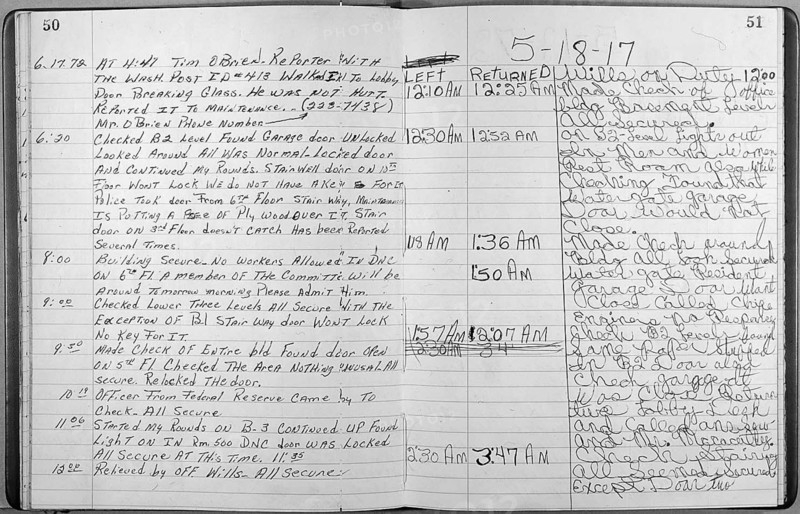 50
6.17.72 AT 4:47 Tim O'Brien - Reporter "WITH
THE WASH. POST ID #413 WALKED IN TO Lobby
Door BREAKING GLASS. HE WAS NOT HURT.
REPORTED IT TO MAINTENANCE. - (223-7438)
Mr. O'Brien PHONE NUMBER
6:20 Checked B2 Level Found GARAGE door UNLOCKED
Looked Around All WAS NORMAL - Locked door
AND CONTINUED MY ROUNDS. STAIRWELL door ON 10TH
Floor WONT LOCK WE do NOT HAVE A KEY FOR IT
Police TOOK door FROM 6TH Floor STAIR WAY, MAINTENANCE
IS PUTTING A PIECE OF PLY WOOD OVER IT. STAIR
door on 3rd Floor doesn't CATCH HAS been REPORTED
Several Times.
8:00 Building Secure - No WORKERS Allowed "IN DNC
ON 6TH Fl A member OF THE COMMITTE Will be
Around Tomorrow morning Please Admit Him.
9:00 Checked Lower THREE Levels All Secure WITH THE
EXCEPTION OF B.1 STAIR WAY door WONT Lock
No KEY For IT.
9:30 MADE CHECK OF ENTIRE bld Found door OPEN
ON 5TH Fl. CHECKED THE AREA NOTHING "UNUSAL. All
secure. Relocked THE door.
10 OFFicer From Federal Reserve CAME by TO
Check - All Secure
11:06 STARTED My Rounds on B-3 CONTINUED UP Found
Light ON IN Rm. 500 DNC door WAS LOCKED
All Secure AT THIS TIME. 11:35
12:00 Relieved by OFF Wills - All Secure
51
5-18-17
LEFT RETURNED Wills on Duty 12:00
12:10 AM 12:25 AM Made Check of office
bldg Basement Levels
All secured.
12:30 AM 12:52 AM on B2-Level lights out
In Men and Women
Rest Room also While
Checking Found that
Water gate garage
Door Would Not
Close.
1:18 AM 1:36 AM Made Check around
Bldg All look secured
1:50 AM Water gate Resident
Garage Door Want
Close Called Chife
Engineer No Response
1:57 AM 2:07 AM Check B2 Level found
2:30 AM 3:4 Same Paper stuffed
In B2 Door also
Check garage it
Was Close Return
two Lobby-Desk
and Called
and Mr.
2:30 AM 3:47 AM Check Stairing
All Seemes Secured
Except Door two